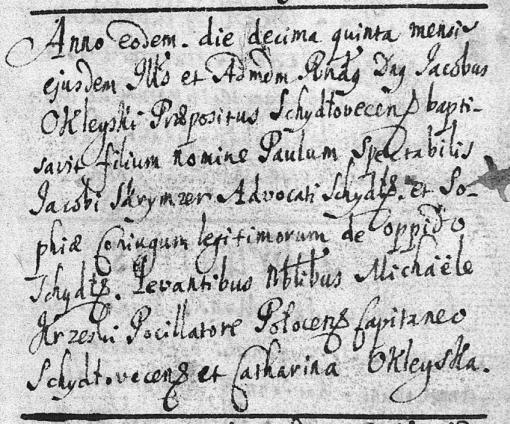 Anno eodem. die decima quinta mensis
ejusdem Ill's et Admdm Rndq Dnq Jacobus
Okleyski Præpositus Schydłovecens bapti-
savit filium nomine Paulum Spectabilis
Jacobi Skrymzer Advocati Schydł. et So-
phiæ Coniugum legitimorum de oppido
Schydł. Levantibus Nbłibus Michaële
Krzeski Pocillatore Połocens Capitaneo
Schydłovecens et Catharina Okleyska.